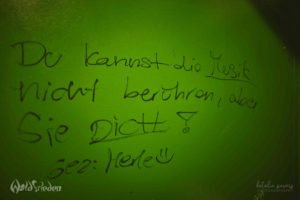 Du kannst die Musik
nicht berühren, aber
Sie DICH!
gez: Merle☺
Waldfrieden